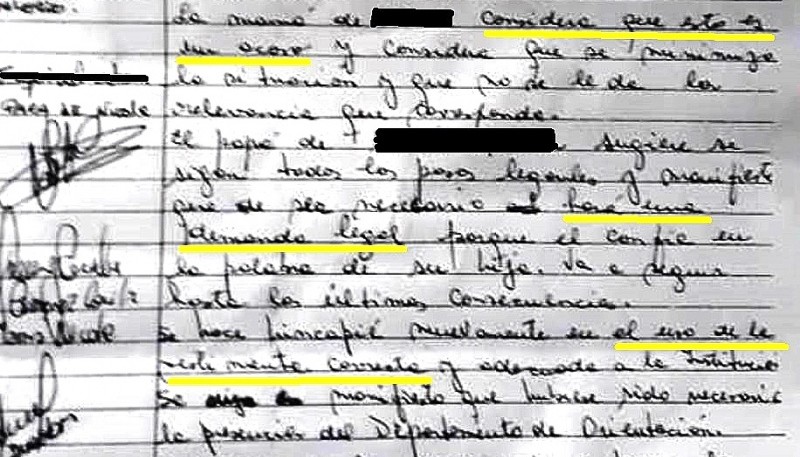 La mamá de considera que esto es
un acoso y considera que se minimiza
la situación y que no se le da la
relevancia que corresponde.
El papá de sugiere se
sigan todos los pasos legales y manifiesta
que de ser necesario hará una
demanda legal porque el confía en
la palabra de su hija. Va a seguir
hasta las últimas consecuencias.
Se hace hincapié nuevamente en el uso de la
vestimenta correcta y adecuada a la Institució
Se manifiesta que hubiese sido necesario
la presencia del Departamento de Orientación.